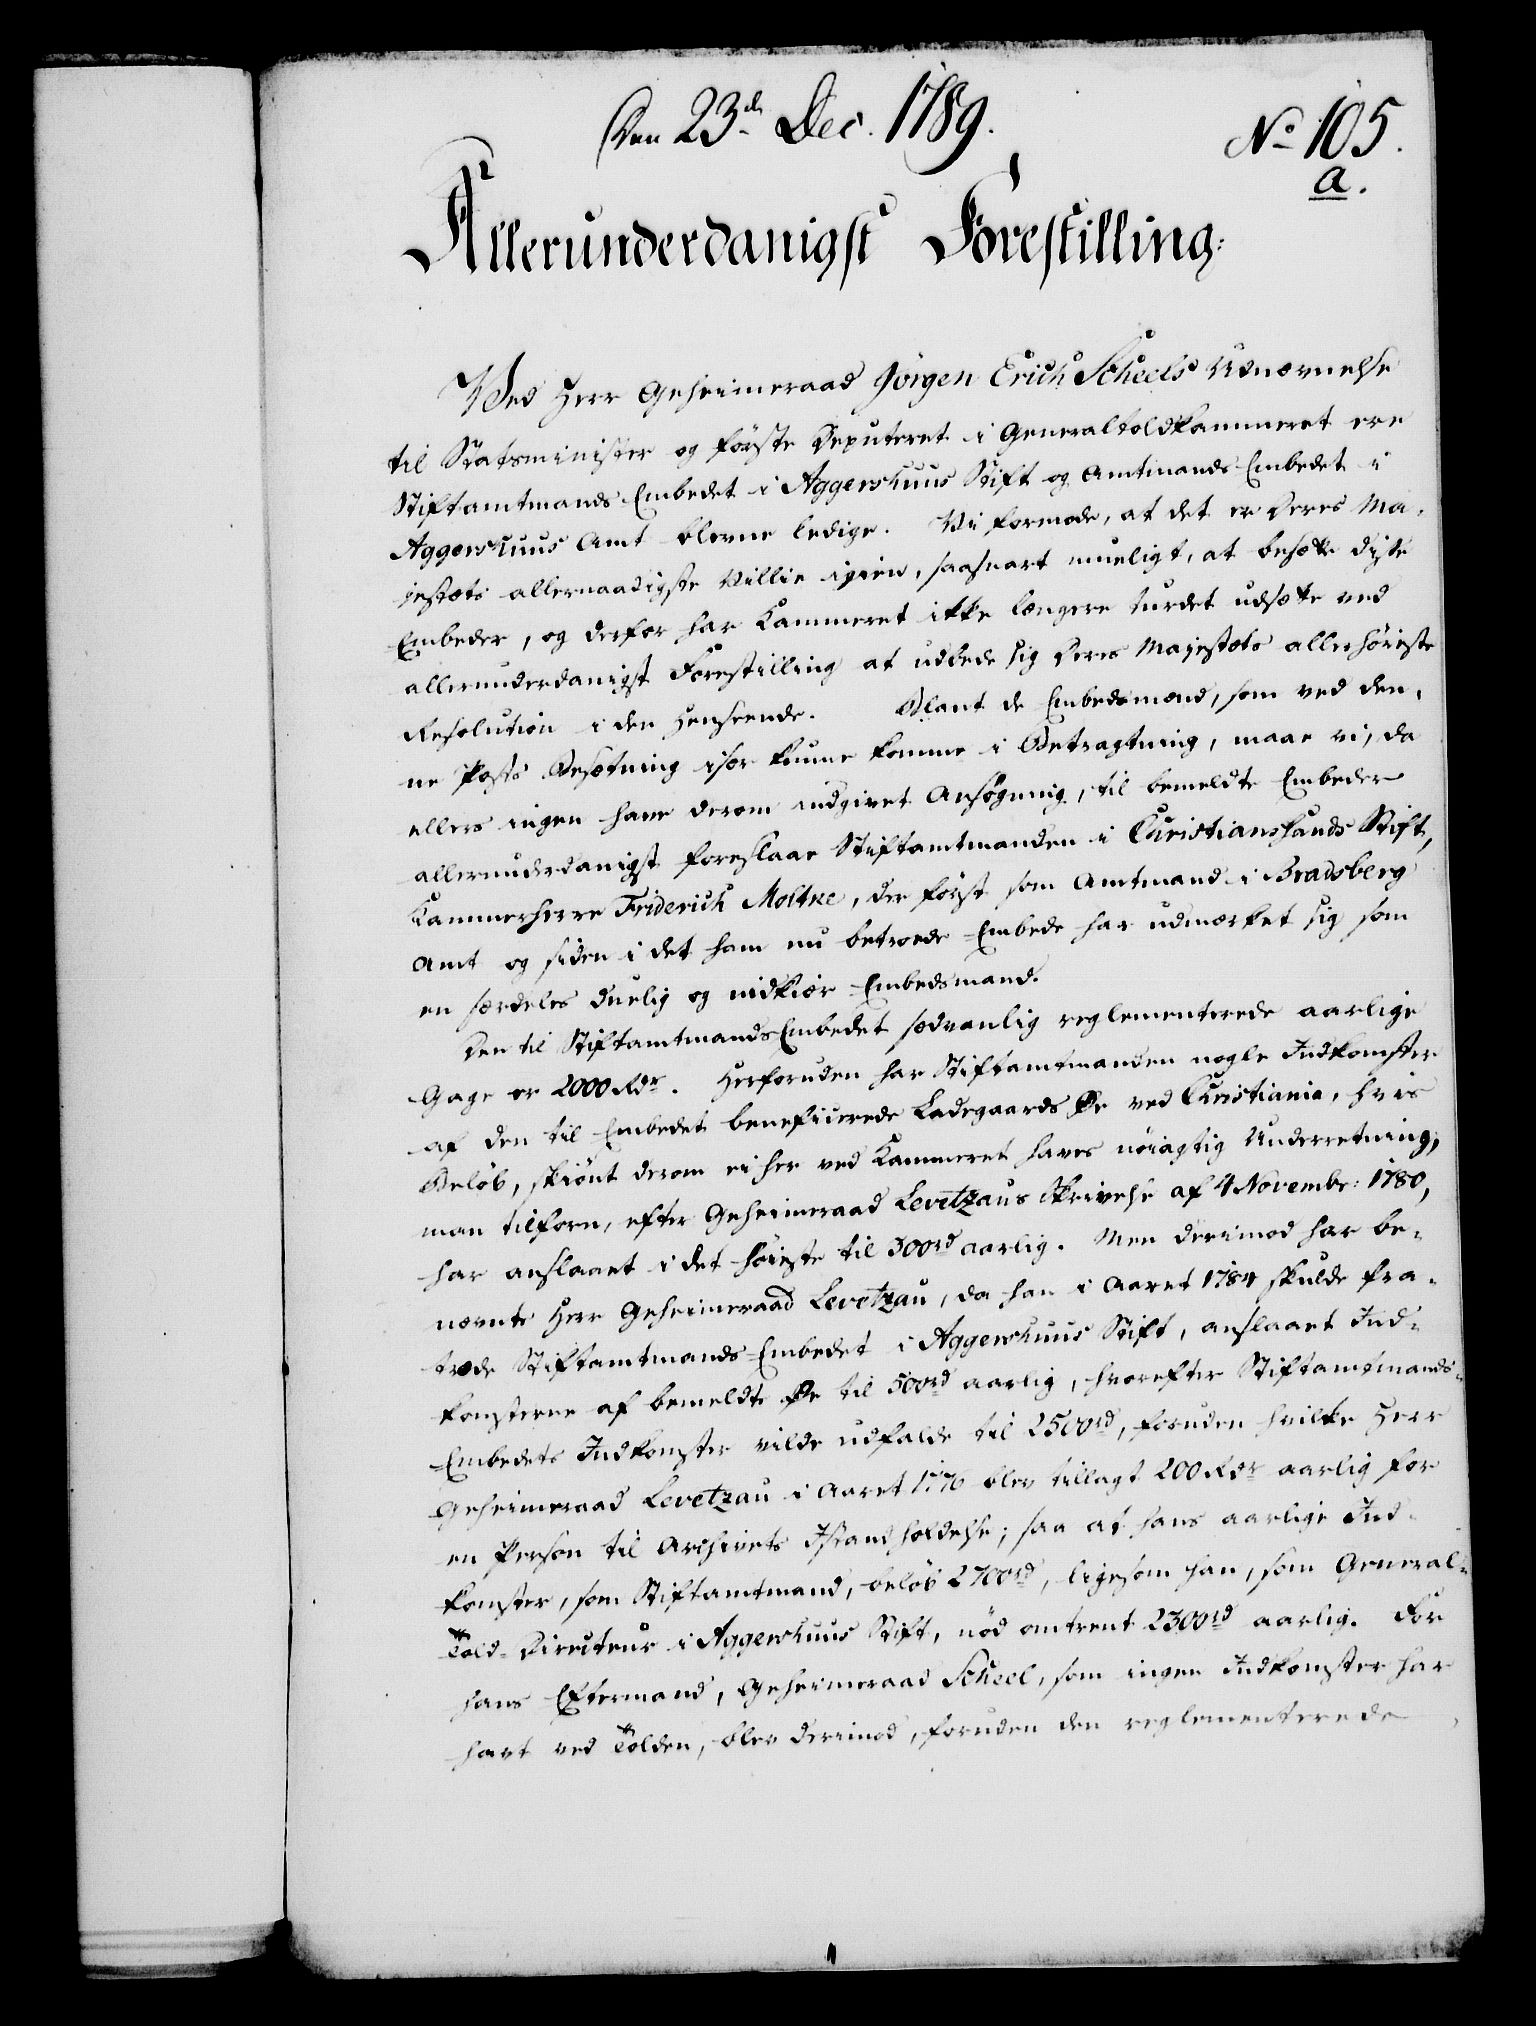 Den 23de Dec. 1789.
No 105.
a.
Allerunderdanigst Forestilling:
Ved Herr Geheimeraad Jörgen Erich Scheels Udnævnelse
til Statsminister og förste Deputeret i Generaltoldkammeret ere
Stiftamtmands-Embedet i Aggershuus Stift og Amtmands-Embedet i
Aggershuus Amt blevne ledige. Vi formode, at det er Deres Ma-
jestæts allernaadigste Villie igien, saasnart mueligt, at besætte disse
Embeder, og derfor har Kammeret ikke længere turdet udsætte ved
allerunderdanigst Forestilling at udbede sig Deres Majestæts allerhöieste
Resolution i den Henseende. Blant de Embedsmænd, som ved den-
ne Posts Besætning især kunne komme i Betragtning, maae vi, da
ellers ingen have derom indgivet Ansögning, til bemeldte Embeder
allerunderdanigst foreslaae Stiftamtmanden i Christiansands Stift,
Kammerherre Friderich Moltke, der först som Amtmand i Bradsberg
Amt og siden i det ham nu betroede Embede har udmærket sig som
en særdeles duelig og nidkiær Embedsmand.
Den til StiftamtmandsEmbedet sædvanlig reglementerede aarlige
Gage er 2000 Rdr. Herforuden har Stiftamtmanden nogle Indkomster
af den til Embedet beneficerede Ladegaards Øe ved Christiania, hvis
Belöb, skiönt derom ei her ved Kammeret haves nöiagtig Underretning,
man tilforn, efter Geheimeraad Levetzaus Skrivelse af 4 Novembr: 1780,
har anslaaet i det höieste til 300rd aarlig. Men derimod har be-
nævnte Herr Geheimeraad Levetzau, da han i Aaret 1784 skulde fra-
træde Stiftamtmands-Embedet i Aggershuus Stift, anslaaet Ind-
komsterne af bemeldte Øe til 500rd aarlig, hvorefter Stiftamtmands-
Embedets Indkomster vilde udfalde til 2500rd, foruden hvilke Herr
Geheimeraad Levetzau i Aaret 1776 blev tillagt 200 Rdr aarlig for
en Person til Archivets Istandholdelse; saa at hans aarlige Ind-
komster, som Stiftamtmand, belöb 2700rd, ligesom han, som General-
Told-Directeur i Aggershuus Stift, nöd omtrent 2300rd aarlig. For
hans Eftermand, Geheimeraad Scheel, som ingen Indkomster har
havt ved Tolden, blev derimod, foruden den reglementerede